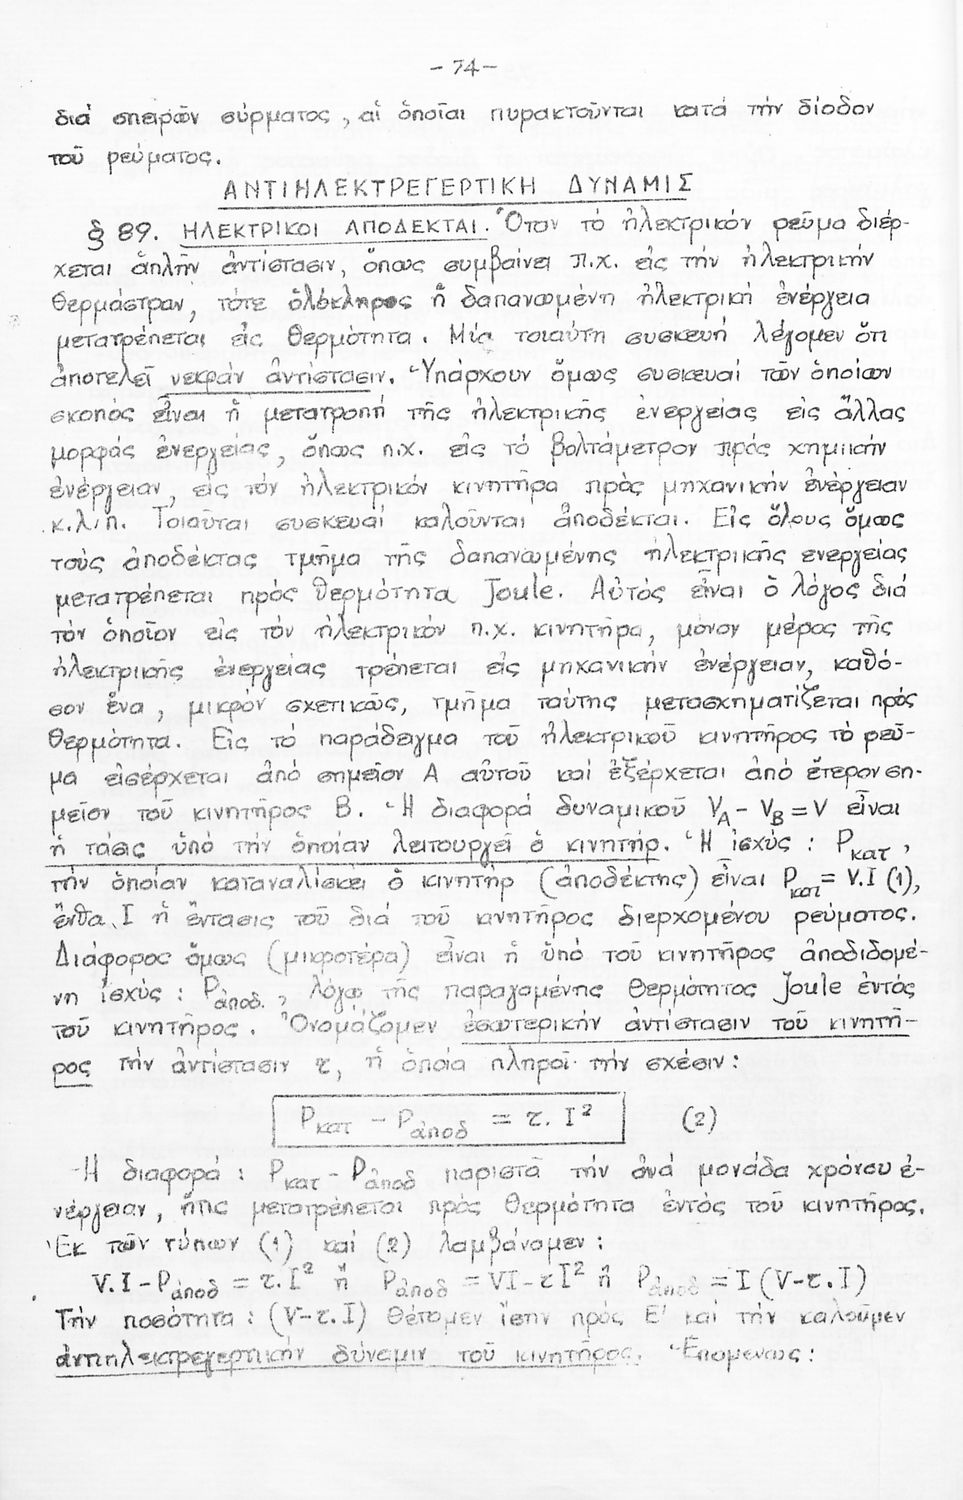 - 74 -
διά σπειρῶν σύρματος, αἱ ὁποῖαι πυρακτοῦνται κατά τήν δίοδον
τοῦ ρεύματος.
ΑΝΤΙΗΛΕΚΤΡΕΓΕΡΤΙΚΗ ΔΥΝΑΜΙΣ
§ 89. ΗΛΕΚΤΡΙΚΟΙ ΑΠΟΔΕΚΤΑΙ. Ὅταν τό ἠλεκτρικόν ρεῦμα διέρ-
χεται ἁπλῆν ἀντίστασιν, ὅπως συμβαίνει π.χ. εἰς τήν ἠλεκτρικήν
θερμάστραν, τότε ὁλόκληρος ἡ δαπανωμένη ἠλεκτρική ἐνέργεια
μετατρέπεται εἰς θερμότητα. Μία τοιαύτη συσκευή λέγομεν ὅτι
ἀποτελεῖ νεκράν ἀντίστασιν. Ὑπάρχουν ὅμως συσκευαί τῶν ὁποίων
σκοπός εἶναι ἡ μετατροπή τῆς ἠλεκτρικῆς ἐνεργείας εἰς ἄλλας
μορφάς ἐνεργείας, ὅπως π.χ. εἰς τό βολτάμετρον πρός χημικήν
ἐνέργειαν, εἰς τόν ἠλεκτρικόν κινητῆρα πρός μηχανικήν ἐνέργειαν
κ.λ.π. Τοιαῦται συσκευαί καλοῦνται ἀποδέκται. Εἰς ὅλους ὅμως
τούς ἀποδέκτας τμῆμα τῆς δαπανωμένης ἠλεκτρικῆς ενεργείας
μετατρέπεται πρός θερμότητα Joule. Αὐτός εἶναι ὁ λόγος διά
τόν ὁποῖον εἰς τόν ἠλεκτρικόν π.χ. κινητῆρα, μόνον μέρος τῆς
ἠλεκτρικῆς ἐνεργείας τρέπεται εἰς μηχανικήν ἐνέργειαν, καθό-
σον ἕνα, μικρόν σχετικῶς, τμῆμα ταύτης μετασχηματίζεται πρός
θερμότητα. Εἰς τό παράδειγμα τοῦ ἠλεκτρικοῦ κινητῆρος τό ρεῦ-
μα εἰσέρχεται ἀπό σημεῖον Α αὐτοῦ καί ἐξέρχεται ἀπό ἕτερον ση-
μεῖον τοῦ κινητῆρος Β. Ἡ διαφορά δυναμικοῦ V_A - V_B = V εἶναι
ἡ τάσις ὑπό τήν ὁποίαν λειτουργεῖ ὁ κινητήρ. Ἡ ἰσχύς: P_κατ,
τήν ὁποίαν καταναλίσκει ὁ κινητήρ (ἀποδέκτης) εἶναι P_κατ = V.I (1),
ἔνθα I ἡ ἔντασις τοῦ διά τοῦ κινητῆρος διερχομένου ρεύματος.
Διάφορος ὅμως (μικροτέρα) εἶναι ἡ ὑπό τοῦ κινητῆρος ἀποδιδομέ-
νη ἰσχύς: P_ἀποδ., λόγω τῆς παραγομένης θερμότητος Joule ἐντός
τοῦ κινητῆρος. Ὀνομάζομεν ἐσωτερικήν ἀντίστασιν τοῦ κινητῆ-
ρος τήν ἀντίστασιν τ, ἡ ὁποία πληροῖ τήν σχέσιν:
P_κατ - P_ἀποδ = τ. I² (2)
Ἡ διαφορά: P_κατ - P_ἀποδ παριστᾶ τήν ἀνά μονάδα χρόνου ἐ-
νέργειαν, ἥτις μετατρέπεται πρός θερμότητα ἐντός τοῦ κινητῆρος.
Ἐκ τῶν τύπων (1) καί (2) λαμβάνομεν:
V.I - P_ἀποδ = τ.I² ἤ P_ἀποδ = VI - τI² ἤ P_ἀποδ = I (V-τ.I)
Τήν ποσότητα: (V-τ.I) θέτομεν ἴσην πρός E' καί τήν καλοῦμεν
ἀντιηλεκτρεγερτικήν δύναμιν τοῦ κινητῆρος. Ἑπομένως: